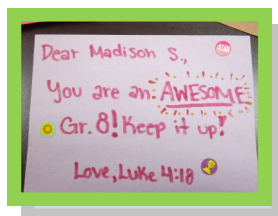 Dear Madison S.,
You are an: AWESOME
Gr. 8! Keep it up!
Love, Luke 4:18